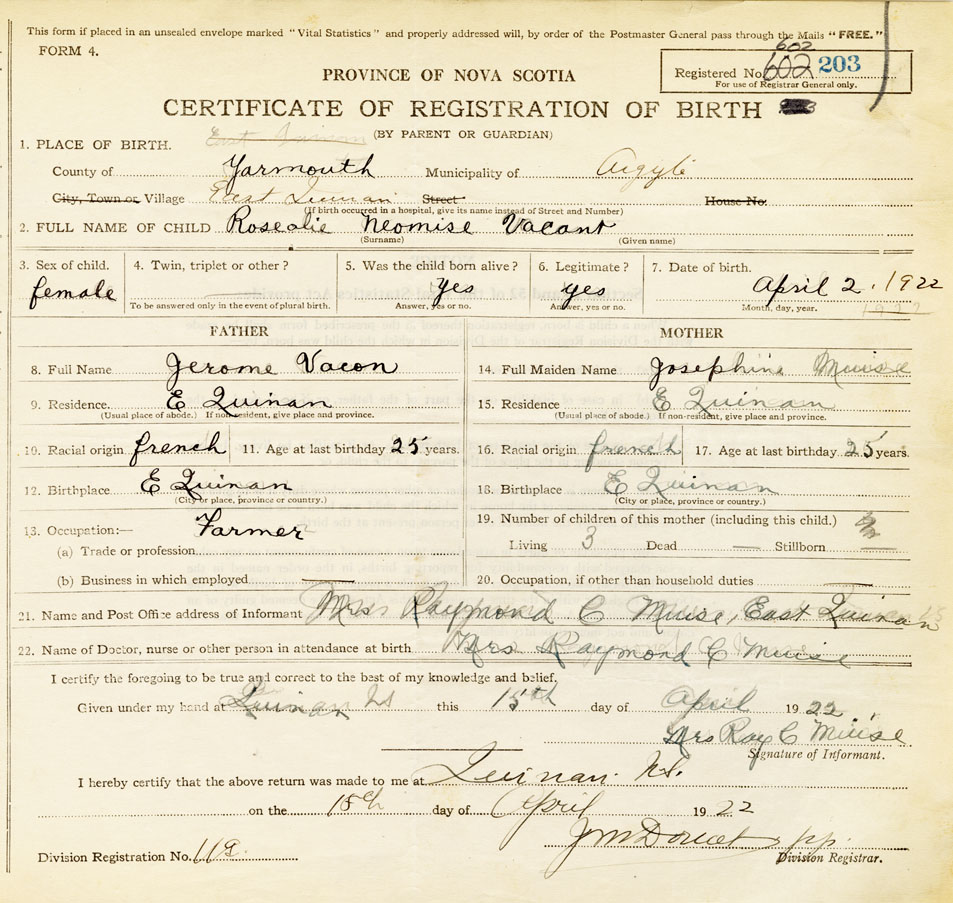 This form if placed in an unsealed envelope marked "Vital Statistics" and properly addressed will, by order of the Postmaster General pass through the Mails "FREE."
FORM 4.
602
Registered No. 602 203
For use of Registrar General only.
PROVINCE OF NOVA SCOTIA
CERTIFICATE OF REGISTRATION OF BIRTH
East Quinan (BY PARENT OR GUARDIAN)
1. PLACE OF BIRTH.
County of Yarmouth Municipality of Argyle
City, Town or Village East Quinan Street House No.
(If birth occurred in a hospital, give its name instead of Street and Number)
2. FULL NAME OF CHILD Rosealie Neomise Vacant
(Surname) (Given name)
3. Sex of child. 4. Twin, triplet or other? 5. Was the child born alive? 6. Legitimate? 7. Date of birth.
female Yes yes April 2. 1922
To be answered only in the event of plural birth. Answer, yes or no. Answer, yes or no. Month, day, year. 1922
FATHER MOTHER
8. Full Name Jerome Vacon 14. Full Maiden Name Josephine Muise
9. Residence. E Quinan 15. Residence E Quinan
(Usual place of abode.) If non-resident, give place and province. (Usual place of abode.) If non-resident, give place and province.
10. Racial origin french 11. Age at last birthday 25 years. 16. Racial origin french 17. Age at last birthday 25 years.
12. Birthplace E Quinan 18. Birthplace E Quinan
(City or place, province or country.) (City or place, province or country.)
13. Occupation:— Farmer 19. Number of children of this mother (including this child.)
(a) Trade or profession Living 3 Dead — Stillborn —
(b) Business in which employed — 20. Occupation, if other than household duties —
21. Name and Post Office address of Informant Mrs Raymond C Muise, East Quinan
22. Name of Doctor, nurse or other person in attendance at birth Mrs Raymond C Muise
I certify the foregoing to be true and correct to the best of my knowledge and belief.
Given under my hand at Quinan NS this 15th day of April 1922
Mrs Ray C Muise
Signature of Informant.
I hereby certify that the above return was made to me at Quinan. N.S.
on the 15th day of April 1922
J M Doucet pp.
Division Registration No. Division Registrar.